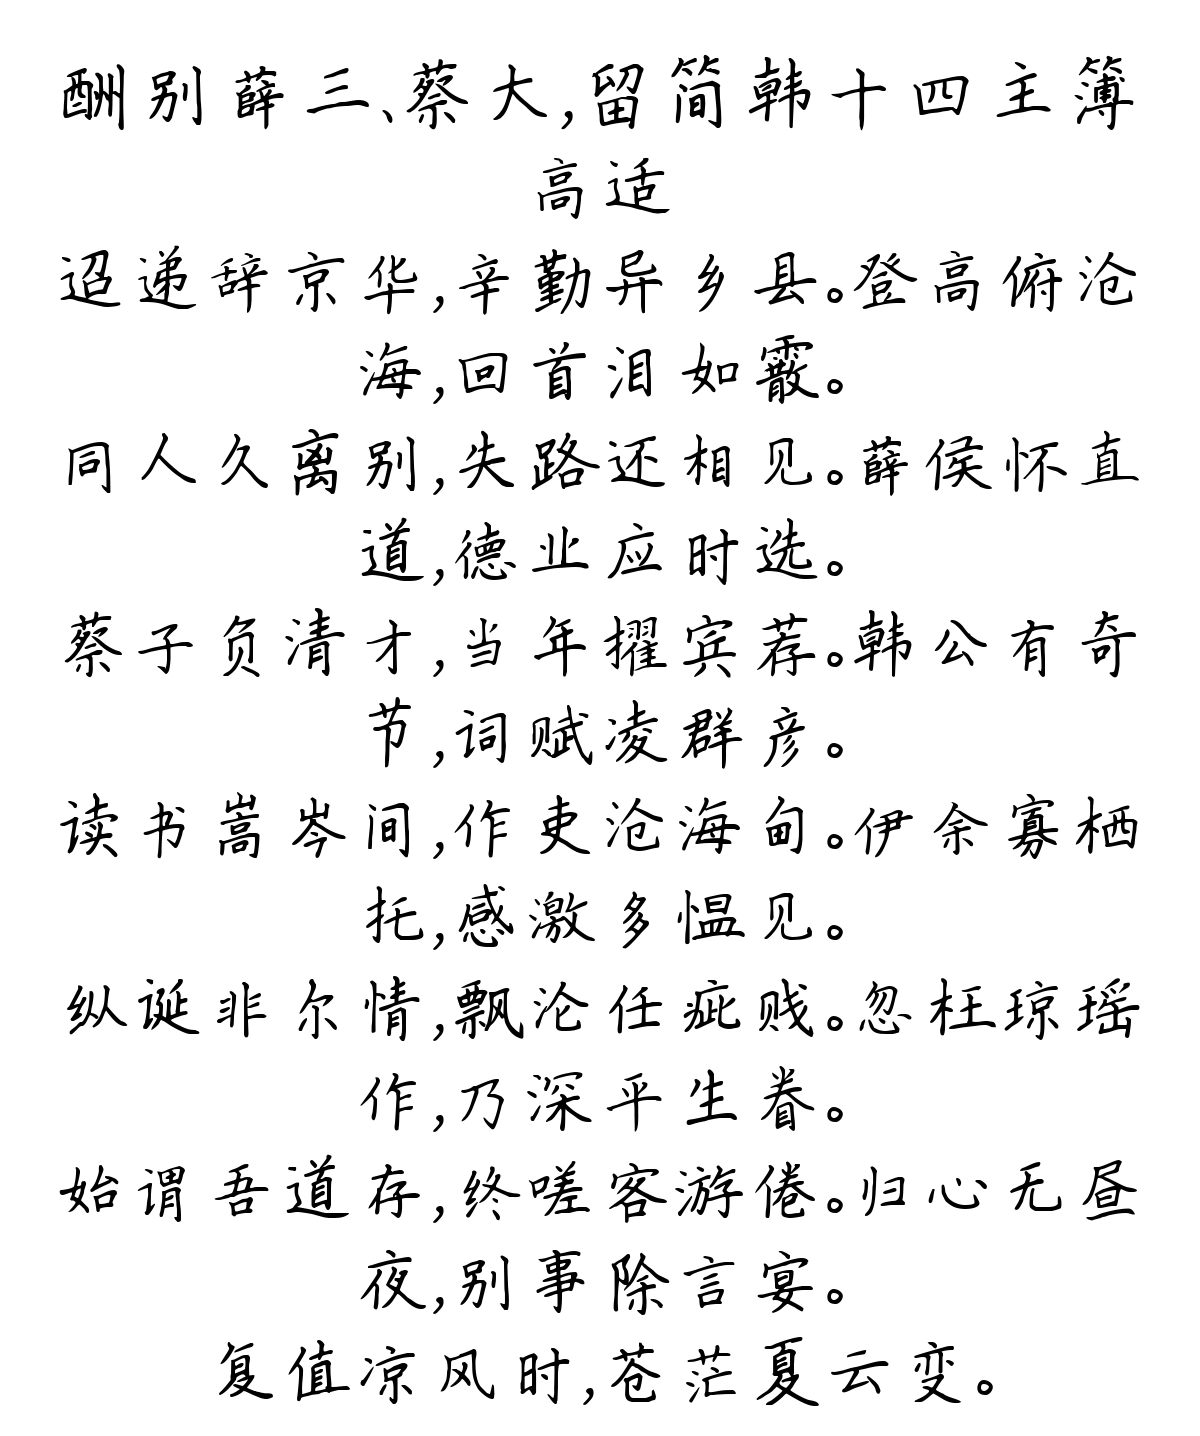 酬别薛三、蔡大,留简韩十四主簿
高适
迢递辞京华,辛勤异乡县。登高俯沧
海,回首泪如霰。
同人久离别,失路还相见。薛侯怀直
道,德业应时选。
蔡子负清才,当年擢宾荐。韩公有奇
节,词赋凌群彦。
读书嵩岑间,作吏沧海甸。伊余寡栖
托,感激多愠见。
纵诞非尔情,飘沦任疵贱。忽枉琼瑶
作,乃深平生眷。
始谓吾道存,终嗟客游倦。归心无昼
夜,别事除言宴。
复值凉风时,苍茫夏云变。